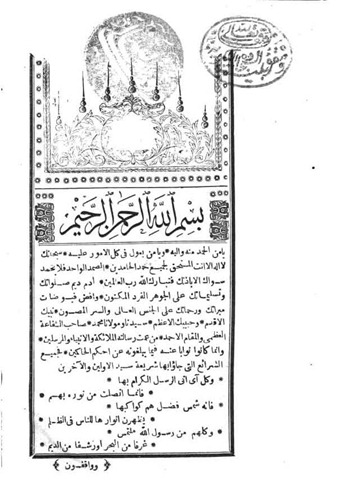 بسم الله الرحمن الرحيم
يا من الحمد منه واليه * ويا من يعول في كل الامور عليه * سبحانك
لا اله الا انت المستحق لجميع حمد الحامدين * الصمد الواحد فلا يحمد
سواك الا بإذنك فتبارك الله رب العالمين * ادم ديم صلواتك
وتسليماتك على الجوهر الفرد المكنون * وافض فيوضات
مبراتك ورحماتك على الجنس العالى والسر المصون * نبيك
الاقدم * وحبيبك الاعظم * سيدنا ومولانا محمد * صاحب الشفاعة
العظمى والمقام الاحمد * من عمت رسالته الملائكة والانبياء والمرسلين *
وانما كانوا نوابا عنه فيما يبلغونه عن احكم الحاكمين * فجميع
الشرائع التي جاؤا بها شريعة سيد الاولين والآخرين
* وكل آى اتى الرسل الكرام بها *
* فانما اتصلت من نوره بهم *
* فانه شمس فضل هم كواكبها *
* يظهرن انوارها للناس فى الظلم *
* وكلهم من رسول الله ملتمس *
* غرفا من البحر او رشفا من الديم *
﴿ وواقفون ﴾